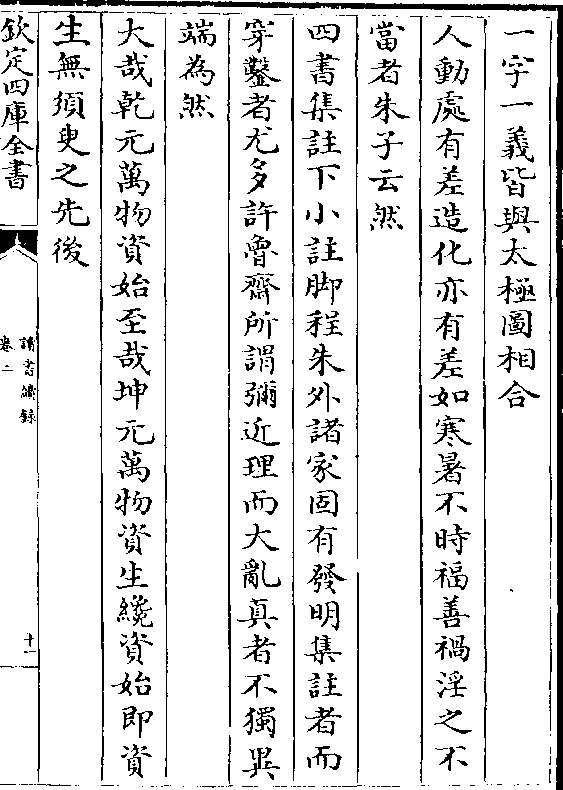 一字一義皆與太極圖相合
人動處有差造化亦有差如寒暑不時福善禍淫之不
當者朱子云然
四書集註下小註脚程朱外諸家固有發明集註者而
穿鑿者尤多許魯齋所謂彌近理而大亂真者不獨異
端為然
大哉乾元萬物資始至哉坤元萬物資生纔資始即資
生無須臾之先後
欽定四庫全書
讀書續錄
卷二
十一